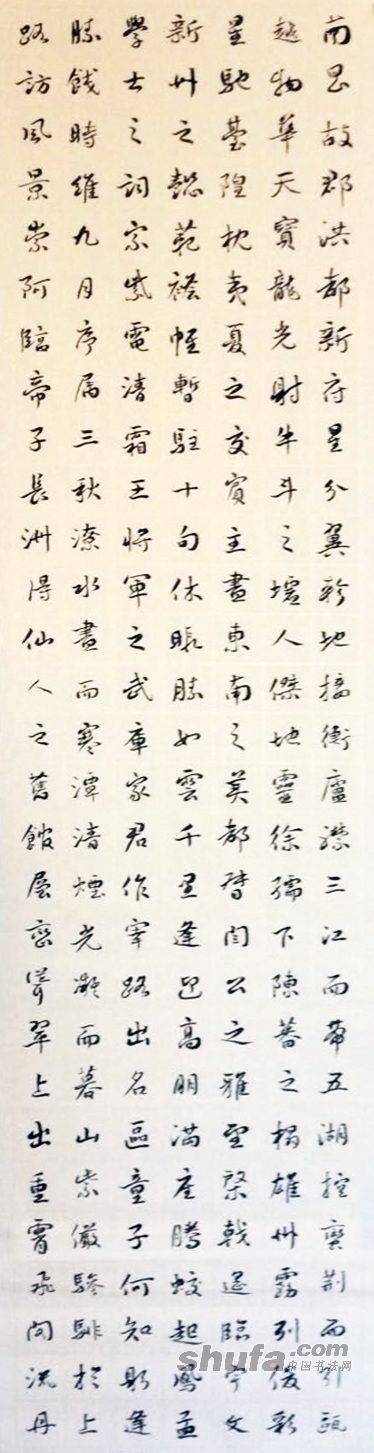 南昌故郡洪都新府星分翼軫地接衡廬襟三江而帶五湖控蠻荊而引甌
越物華天寶龍光射牛斗之墟人傑地靈徐孺下陳蕃之榻雄州霧列俊彩
星馳臺隍枕夷夏之交賓主盡東南之美都督閻公之雅望棨戟遙臨宇文
新州之懿範襜帷暫駐十旬休暇勝如雲千里逢迎高朋滿座騰蛟起鳳孟
學士之詞宗紫電清霜王將軍之武庫家君作宰路出名區童子何知躬逢
勝餞時維九月序屬三秋潦水盡而寒潭清煙光凝而暮山紫儼驂騑於上
路訪風景崇阿臨帝子長洲得仙人之舊館層巒聳翠上出重霄飛閣流丹
shufa.com
中国书法网